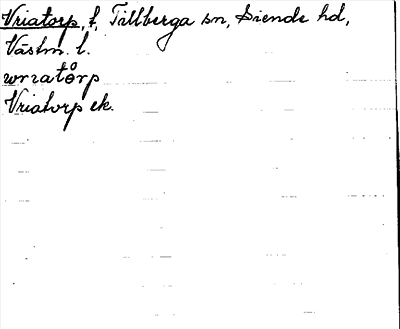 Vriatorp, t, Tillberga sn, Siende hd,
Västm. l.
wriatå̀rp
Vriatorp ek.